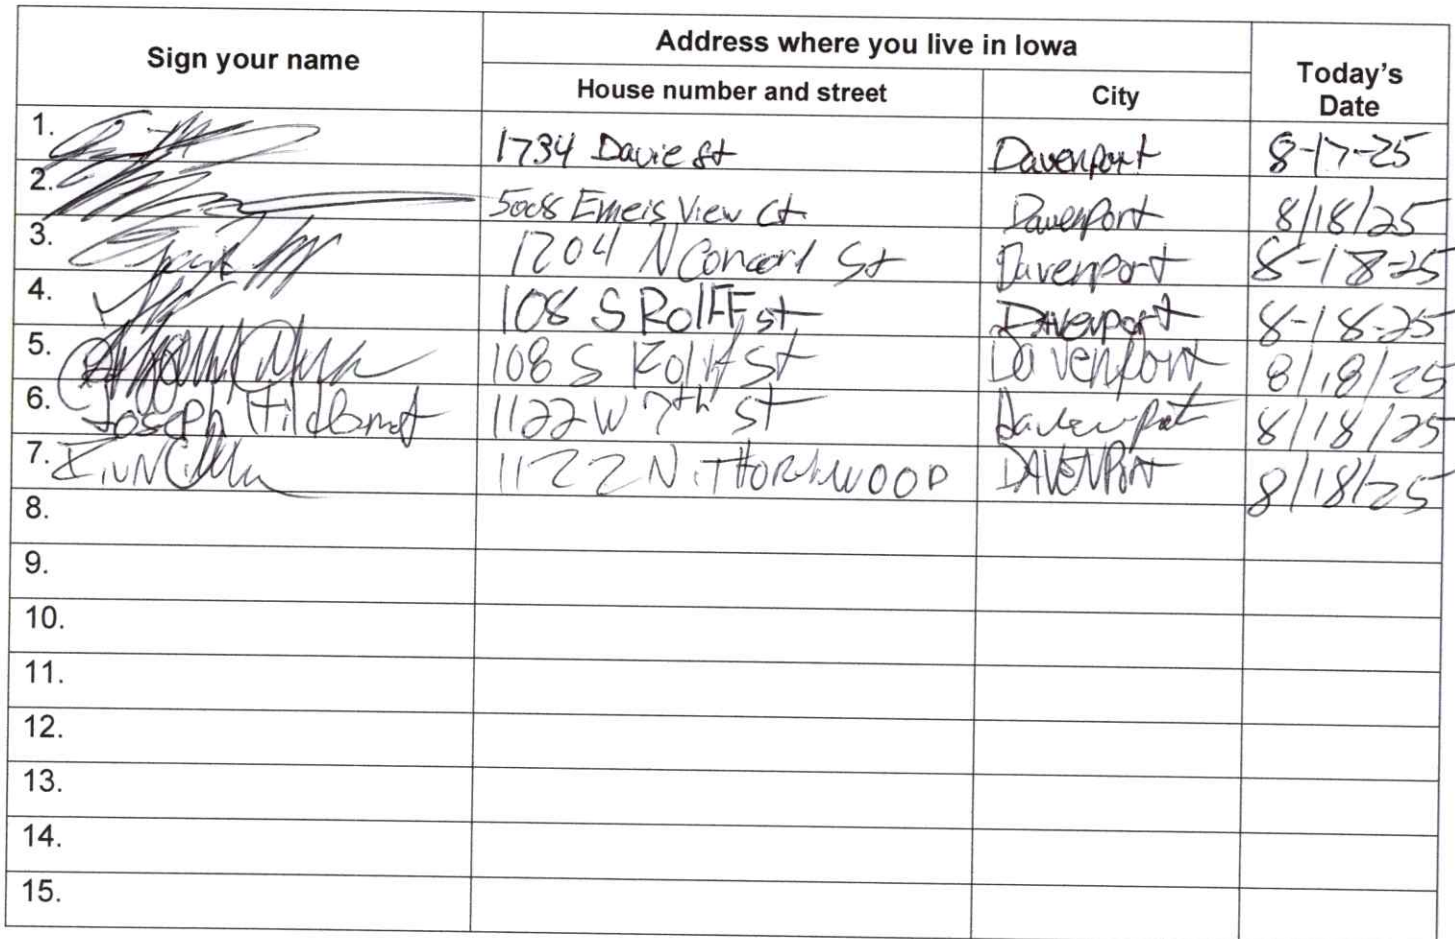 Sign your name
Address where you live in Iowa
Today's Date
House number and street
City
1. 1734 Davie St Davenport 8-17-25
2. 5008 Emeis View Ct Davenport 8/18/25
3. 1204 N Concord St Davenport 8-18-25
4. 108 S Rolff st Davenport 8-18-25
5. 108 S Rolff St Davenport 8/18/25
6. Joseph Hildbrndt 1122 W 7th St Davenport 8/18/25
7. 1122 N. THORNWOOD DAVENPORT 8/18/25
8.
9.
10.
11.
12.
13.
14.
15.